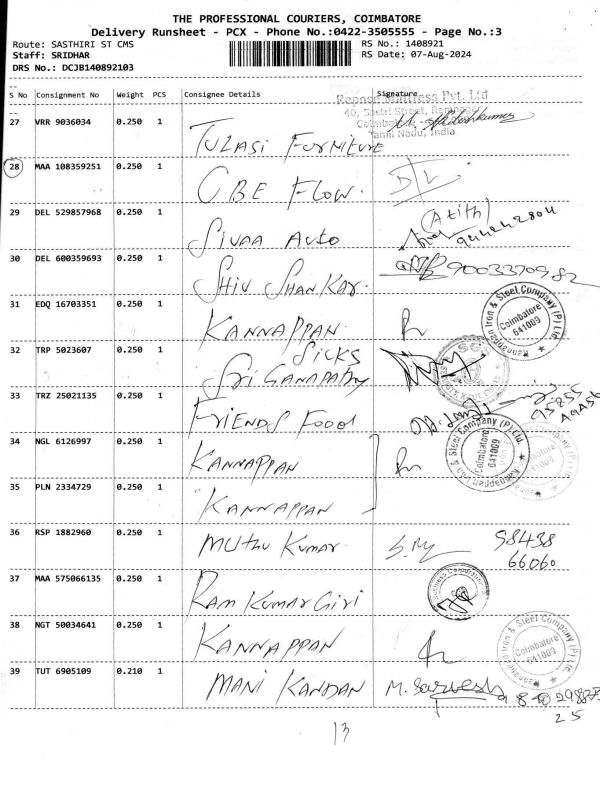 THE PROFESSIONAL COURIERS, COIMBATORE
Delivery Runsheet - PCX - Phone No.:0422-3505555 - Page No.:3
Route: SASTHIRI ST CMS RS No.: 1408921
Staff: SRIDHAR RS Date: 07-Aug-2024
DRS No.: DCJB140892103
S No Consignment No Weight PCS Consignee Details Signature
Repose Mattress Pvt. Ltd
27 VRR 9036034 0.250 1 TULASI FURNITURE
Tamil Nadu, India
28 MAA 108359251 0.250 1 CBE FLOW.
29 DEL 529857968 0.250 1 SIVAA AUTO
30 DEL 600359693 0.250 1 SHIV SHANKAR. 9003370982
31 EDQ 16703351 0.250 1 KANNAPPAN
Kannappan Iron & Steel Company (P) Ltd.
Coimbatore
641009
32 TRP 5023607 0.250 1 SRI GANAPATHY SICKS
33 TRZ 25021135 0.250 1 FRIENDS FOOD
34 NGL 6126997 0.250 1 KANNAPPAN
Kannappan Iron & Steel Company (P) Ltd.
Coimbatore
641009
35 PLN 2334729 0.250 1 "KANNAPPAN
36 RSP 1882960 0.250 1 MUTHU KUMAR. 98438
66060
37 MAA 575066135 0.250 1 RAM KUMAR GIRI
38 NGT 50034641 0.250 1 KANNAPPAN
Kannappan Iron & Steel Company (P) Ltd.
Coimbatore
641009
39 TUT 6905109 0.210 1 MANI KANDAN M. Sarvesh
25
13